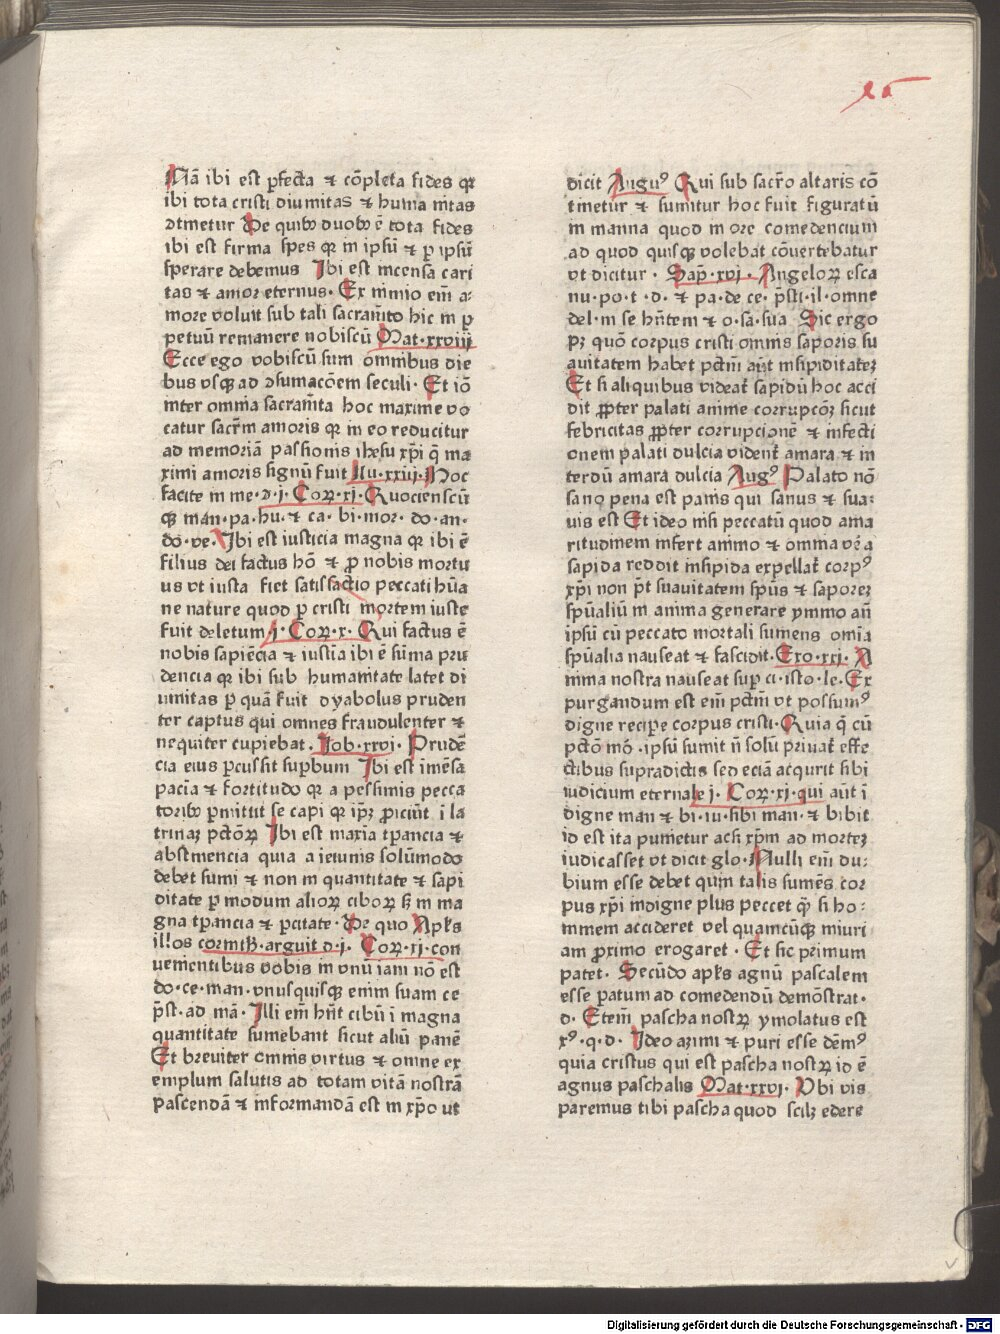 Nā ibi est ꝑfecta ⁊ cōpleta fides qꝛ
ibi tota cristi diuinitas ⁊ huma nitas
ↄtinetur De quibꝫ duobꝫ ē tota fides
ibi est firma spes qꝛ in ipsū ⁊ ꝑ ipsū
sperare debemus Ibi est incensa cari
tas ⁊ amor eternus· Ex nimio em̄ a⸗
more voluit sub tali sacram̄to hic in ꝑ
petuū remanere nobiscū Mat·xxviij
Ecce ego vobiscū sum omnibus die
bus vsqꝫ ad ↄsumacōem seculi· Et iō
inter omnia sacram̄ta hoc maxime vo
catur sacrm̄ amoris qꝛ in eo reducitur
ad memoriā passionis ihesu xp̄i q̄ ma
ximi amoris signū fuit Lu·xxiij·Hoc
facite in me·ꝺ·j· Coꝝ·xj·Quociensc̄ū
qꝫ man·pa·hu·⁊ ca· bi·mor· do·an·
do·ve· Ibi est iusticia magna qꝛ ibi ē
filius dei factus hō ⁊ ꝓ nobis mortu
us vt iusta fiet satisfactio peccati hūa
ne nature quod ꝑ cristi mortem iuste
fuit deletum·j· Coꝝ·x· Qui factus ē
nobis sapiēcia ⁊ iustīa ibi ē sūma pru
dencia qꝛ ibi sub humanitate latet di
uinitas ꝑ quā fuit dyabolus pruden
ter captus qui omnes fraudulenter ⁊
nequiter cupiebat· Job·xxvj· Prudē
cia eius ꝑcussit suꝑbum Ibi est īmēsa
pacīa ⁊ fortitudo qꝛ a pessimis pecca
toribꝫ ꝑmittit se capi qꝛ ip̄ꝫ ꝓiciūt ī la
trinaꝫ pctōꝝ Ibi est maxīa tꝑancia ⁊
abstinencia quia a ieiunis solūmodo
debet sumi ⁊ non in quantitate ⁊ sapi
ditate ꝑ modum alioꝝ ciboꝝ sꝫ in ma
gna tꝑancia ⁊ pcitate· De quo Apl̄s
illos corinth̄·arguit ꝺ·j· Coꝝ·xj·con
uenientibus vobis in vnū iam nō est
do·ce·man·vnusquisqꝫ enim suam ce
p̄st·ad mā· Illi em̄ hn̄t cibū ī magna
quantitate sumebant sicut aliū panē
Et breuiter omnis virtus ⁊ omne ex
emplum salutis ad totam vitā nostrā
pascendā ⁊ informandā est in xp̄o ut
dicit Augu⁹ Qui sub sacr̄o altaris cō
tinetur ⁊ sumitur hoc fuit figuratū
in manna quod in ore comedencium
ad quod quisqꝫ volebat cōuertebatur
vt dicitur · Sap̄·xvj· Angeloꝝ esca
nu·po·t ·d· ⁊ pa·de ce· p̄sti·il·omne
del·in se hn̄tem ⁊ o·sa·sua Sic ergo
pꝫ quō corpus cristi omnis saporis su
auitatem habet pctm̄ aūt insipiditateꝫ
Et si aliquibus videat̄ sapidū hoc acci
dit ꝓpter palati anime corrupcōꝫ sicut
febricitas ꝓpter corrupcionē ⁊ infecti
onem palati dulcia vident̄ amara ⁊ in
terdū amara dulcia Aug⁹ Palato nō
sano pena est panis qui sanus ⁊ sua⸗
uis est Et ideo nisi peccatū quod ama
ritudinem infert animo ⁊ omnia vēa
sapida reddit insipida expellat̄ corp⁹
xp̄i non p̄t suauitatem spūs ⁊ saporeꝫ
spūaliū in anima generare ymmo aū
ipsū cū peccato mortali sumens omīa
spūalia nauseat ⁊ fascidit·Exo·xxj· A
nima nostra nauseat suꝑ ci·isto·le·Ex
purgandum est em̄ pctm̄ vt possum⁹
digne recipe corpus cristi·Quia q̄ cū
pctō mō ·ipsū sumit n̄ solū priuat̄ effe
ctibus supradictis sed eciā acq̄urit sibi
iudicium eternale j· Coꝝ·xj·qui aūt ī
digne man ⁊ bi·iu·sibi man·⁊ bibit
id est ita punietur acsi xp̄m ad morteꝫ
iudicasset vt dicit glo·Nulli em̄ du⸗
bium esse debet quin talis sumēs cor
pus xp̄i indigne plus peccet q̄ꝫ si ho⸗
minem accideret vel quamcūqꝫ iniuri
am ꝓximo erogaret· Et sic primum
patet· Secūdo apl̄s agnū pascalem
esse paratum ad comedendū demōstrat·
d· Etem̄ pascha nostꝝ ymolatus est
x⁹·q·d· Ideo azimi ⁊ puri esse dēm⁹
quia cristus qui est pascha nostꝝ id ē
agnus paschalis Mat·xxvj· Vbi vis
paremus tibi pascha quod scilꝫ edere
Digitalisierung gefördert durch die Deutsche Forschungsgemeinschaft · DFG